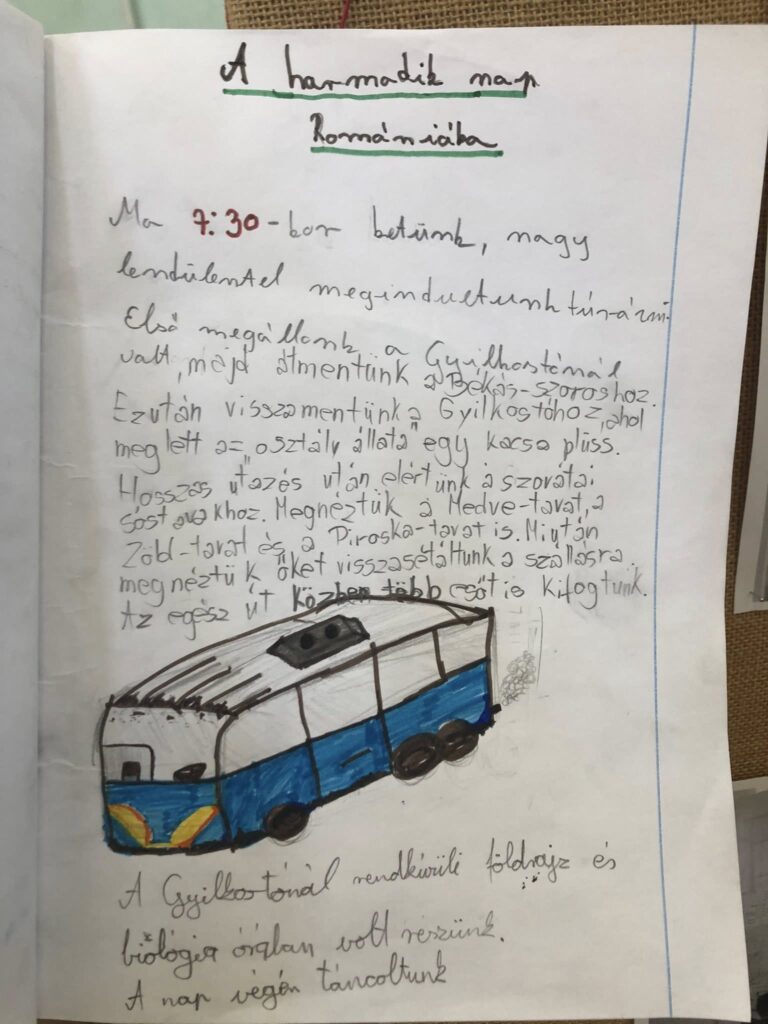 A harmadik nap
Romániába
Ma 7:30-kor
lendülentel megindultunk túrázni.
Első megállonk a Gyilkostónál
valt, majd átmentünk a Békás-szoroshoz.
Ezután visszamentünk a Gyilkostóhoz, ahol
meglett a= "osztály állata" egy kacsa plüss.
Hosszas utazés után elértünk a szovátai
sóstavakhoz. Megnéztük a Medve-tavat, a
Zöld-tavat és a Piroska-tavat is. Miután
megnéztük őket visszasétáltunk a szállásra.
Az egész út közben több esőt is kifogtunk.
A Gyilkostónál rendkívüli földrajz és
biológia órában volt részünk.
A nap végén táncoltunk